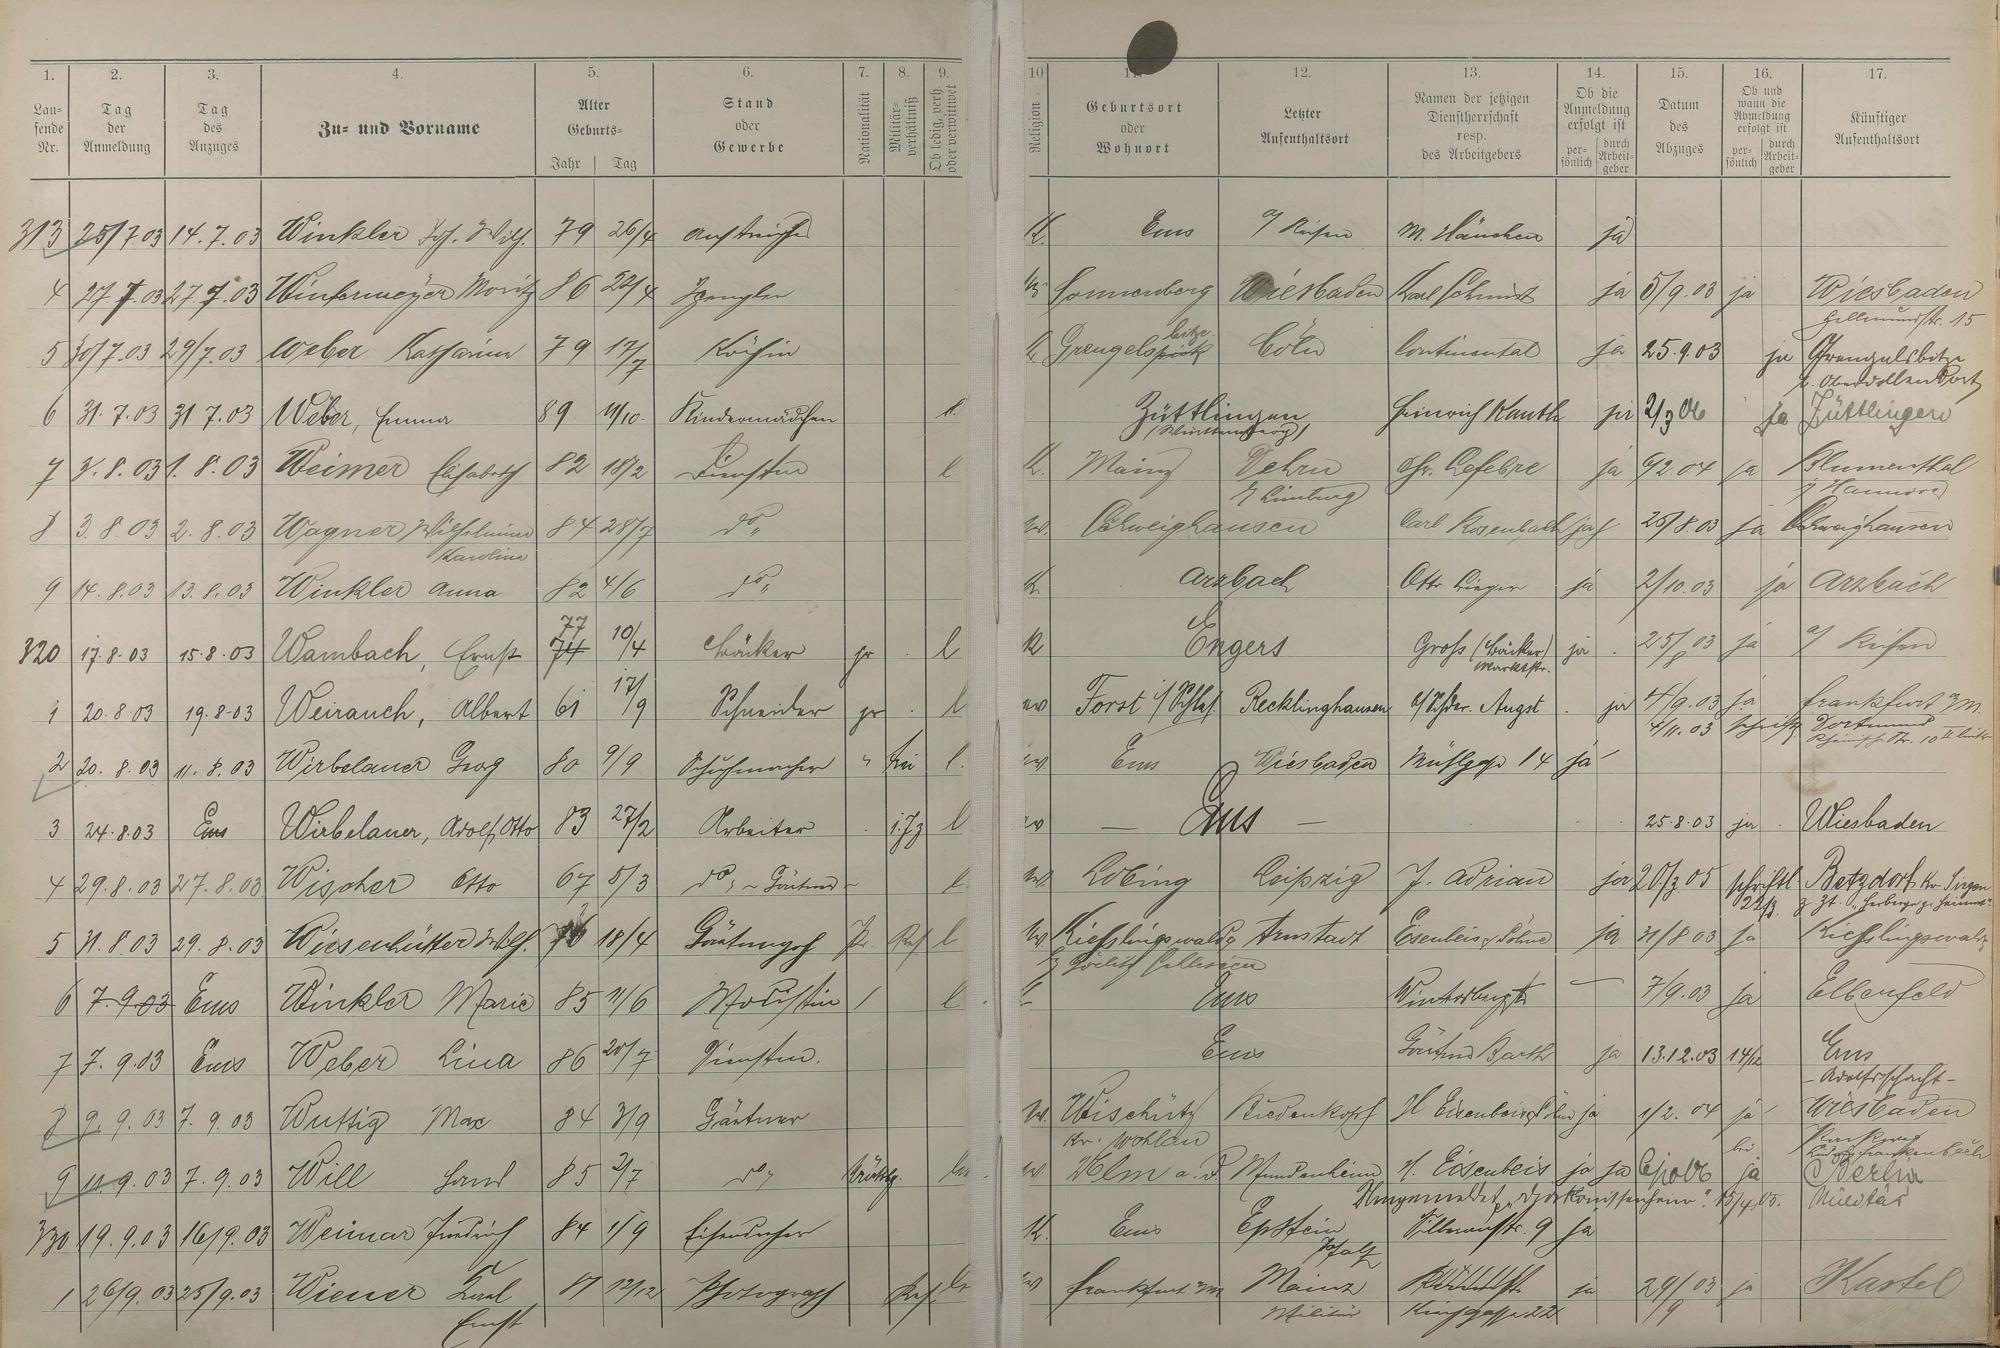 1. 2. 3. 4. 5. 6. 7. 8. 9. 10 11. 12. 13. 14. 15. 16. 17.
Lau-
fende
Nr.
Tag
der
Anmeldung
Tag
des
Anzuges
Zu- und Vorname
Alter
Geburts-
Jahr Tag
Stand
oder
Gewerbe
Nationalität
Militär-
verhältniß
Ob ledig, verh.
oder verwittwet
Religion
Geburtsort
oder
Wohnort
Letzter
Aufenthaltsort
Namen der jetzigen
Dienstherrschaft
resp.
des Arbeitgebers
Ob die
Anmeldung
erfolgt ist
per-
sönlich
durch
Arbeit-
geber
Datum
des
Abzuges
Ob und
wann die
Abmeldung
erfolgt ist
per-
sönlich
durch
Arbeit-
geber
Künftiger
Aufenthaltsort
313 25/7.03 14.7.03 Winkler Jos. Wilh. 79 26/4 Anstreicher K. Ems a/ Reisen M. Hänchen ja
4 27.7.03 27.7.03 Wintermeyer Moritz 86 22/4 Spengler Sonnenberg Wiesbaden Karl Schmidt ja 5/9.03 ja Wiesbaden
Hellmundstr. 15
5 30/7.03 29/7.03 Weber Katharina 79 17/7 Köchin K Grengels bitze Cöln Continental ja 25.9.03 ja Grengelsbitze
6 31.7.03 31.7.03 Weber, Emma 89 11/10. Kindermädchen l. Züttlingen Heinrich ja 2/3 06 ja Züttlingen
(Württemberg)
7 3.8.03 1.8.03 Weimer Elisabeth 82 18/2 Dienstm l K. Mainz Dehrn Chr. Lefebre ja 9/2.04 ja Blumenthal
/ Limburg / Hannover
8 3.8.03 2.8.03 Wagner Wilhelmine 84 28/7 do " Schweighausen Carl Rosenbach ja 25/8.03 ja Schweighausen
Karoline
9 14.8.03 13.8.03 Winkler Anna 82 4/6 do " K Arzbach Otto ja 2/10.03 ja Arzbach
320 17.8.03 15.8.03 Wambach, Ernst 77 10/4 Bäcker pr. l K Engers Gross (Bäcker) ja 25/8 03 ja a/ Reisen
Marktstr.
1 20.8.03 19.8.03 Weirauch, Albert 61 17/9 Schneider pr. l ev Forst i/ Schles. Recklinghausen Augst ja 4/9.03 ja Frankfurt /M.
4/11.03 schriftl. Dortmund
2 20.8.03 11.8.03 Wirbelauer Georg 80 9/9 Schuhmacher " l. ev. Ems Wiesbaden Mühlgasse 14 ja
3 24.8.03 Ems Wirbelauer, Adolf, Otto 83 27/2 Arbeiter l ev — Ems — 25.8.03 ja Wiesbaden
4 29.8.03 27.8.03 Wischer Otto 67 5/3 do " Gärtner l. ev. Leipzig J. Adrian ja 20/3 05 schriftl Betzdorf Kr. Siegen
22/3. z. Zt. "Herberge z. Heimat".
5 31.8.03 29.8.03 Wiesenhütter Wilh. 18/4 Gärtnergeh Pr. Res l ev Kiesslingswalde Arnstadt Eisenbeis, Söhne ja 31/8.03 ja Kiesslingswalde
/ Görlitz Schlesien
6 7.9.03 Ems Winkler Marie 85 11/6 Modistin l Ems 7/9.03 ja Elberfeld
7 7.9.03 Ems Weber Lina 86 20/7 Dienstm. Ems Gärtner Barth ja 13.12.03 14/12 Ems
- Adolfsschacht -
8 9.9.03 7.9.03 Wuttig Max 84 3/9 Gärtner ev. Wischütz Biedenkopf H Eisenbeis, Söhne ja 1/2.04 ja Wiesbaden
Kr. Wohlau
9 11.9.03 7.9.03 Will Hans 85 2/7 do " ev. Ulm a. D. H. Eisenbeis ja ja ja Berlin
Umgemeldet "Diakonissenheim". 15/4.05. Militär
330 19.9.03 16/9.03 Weimar Friedrich 84 1/9 Eisendreher K. Ems Epstein Silberaustr. 9 ja
Pfalz
1 26/9.03 25/9.03 Wiener Karl 81 12/12 Photograph Res. Frankfurt /M Mainz ja 29/9 03 ja Kastel
Ernst Militär Kirchgasse 22